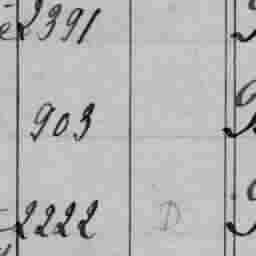 2391
903
2222 D